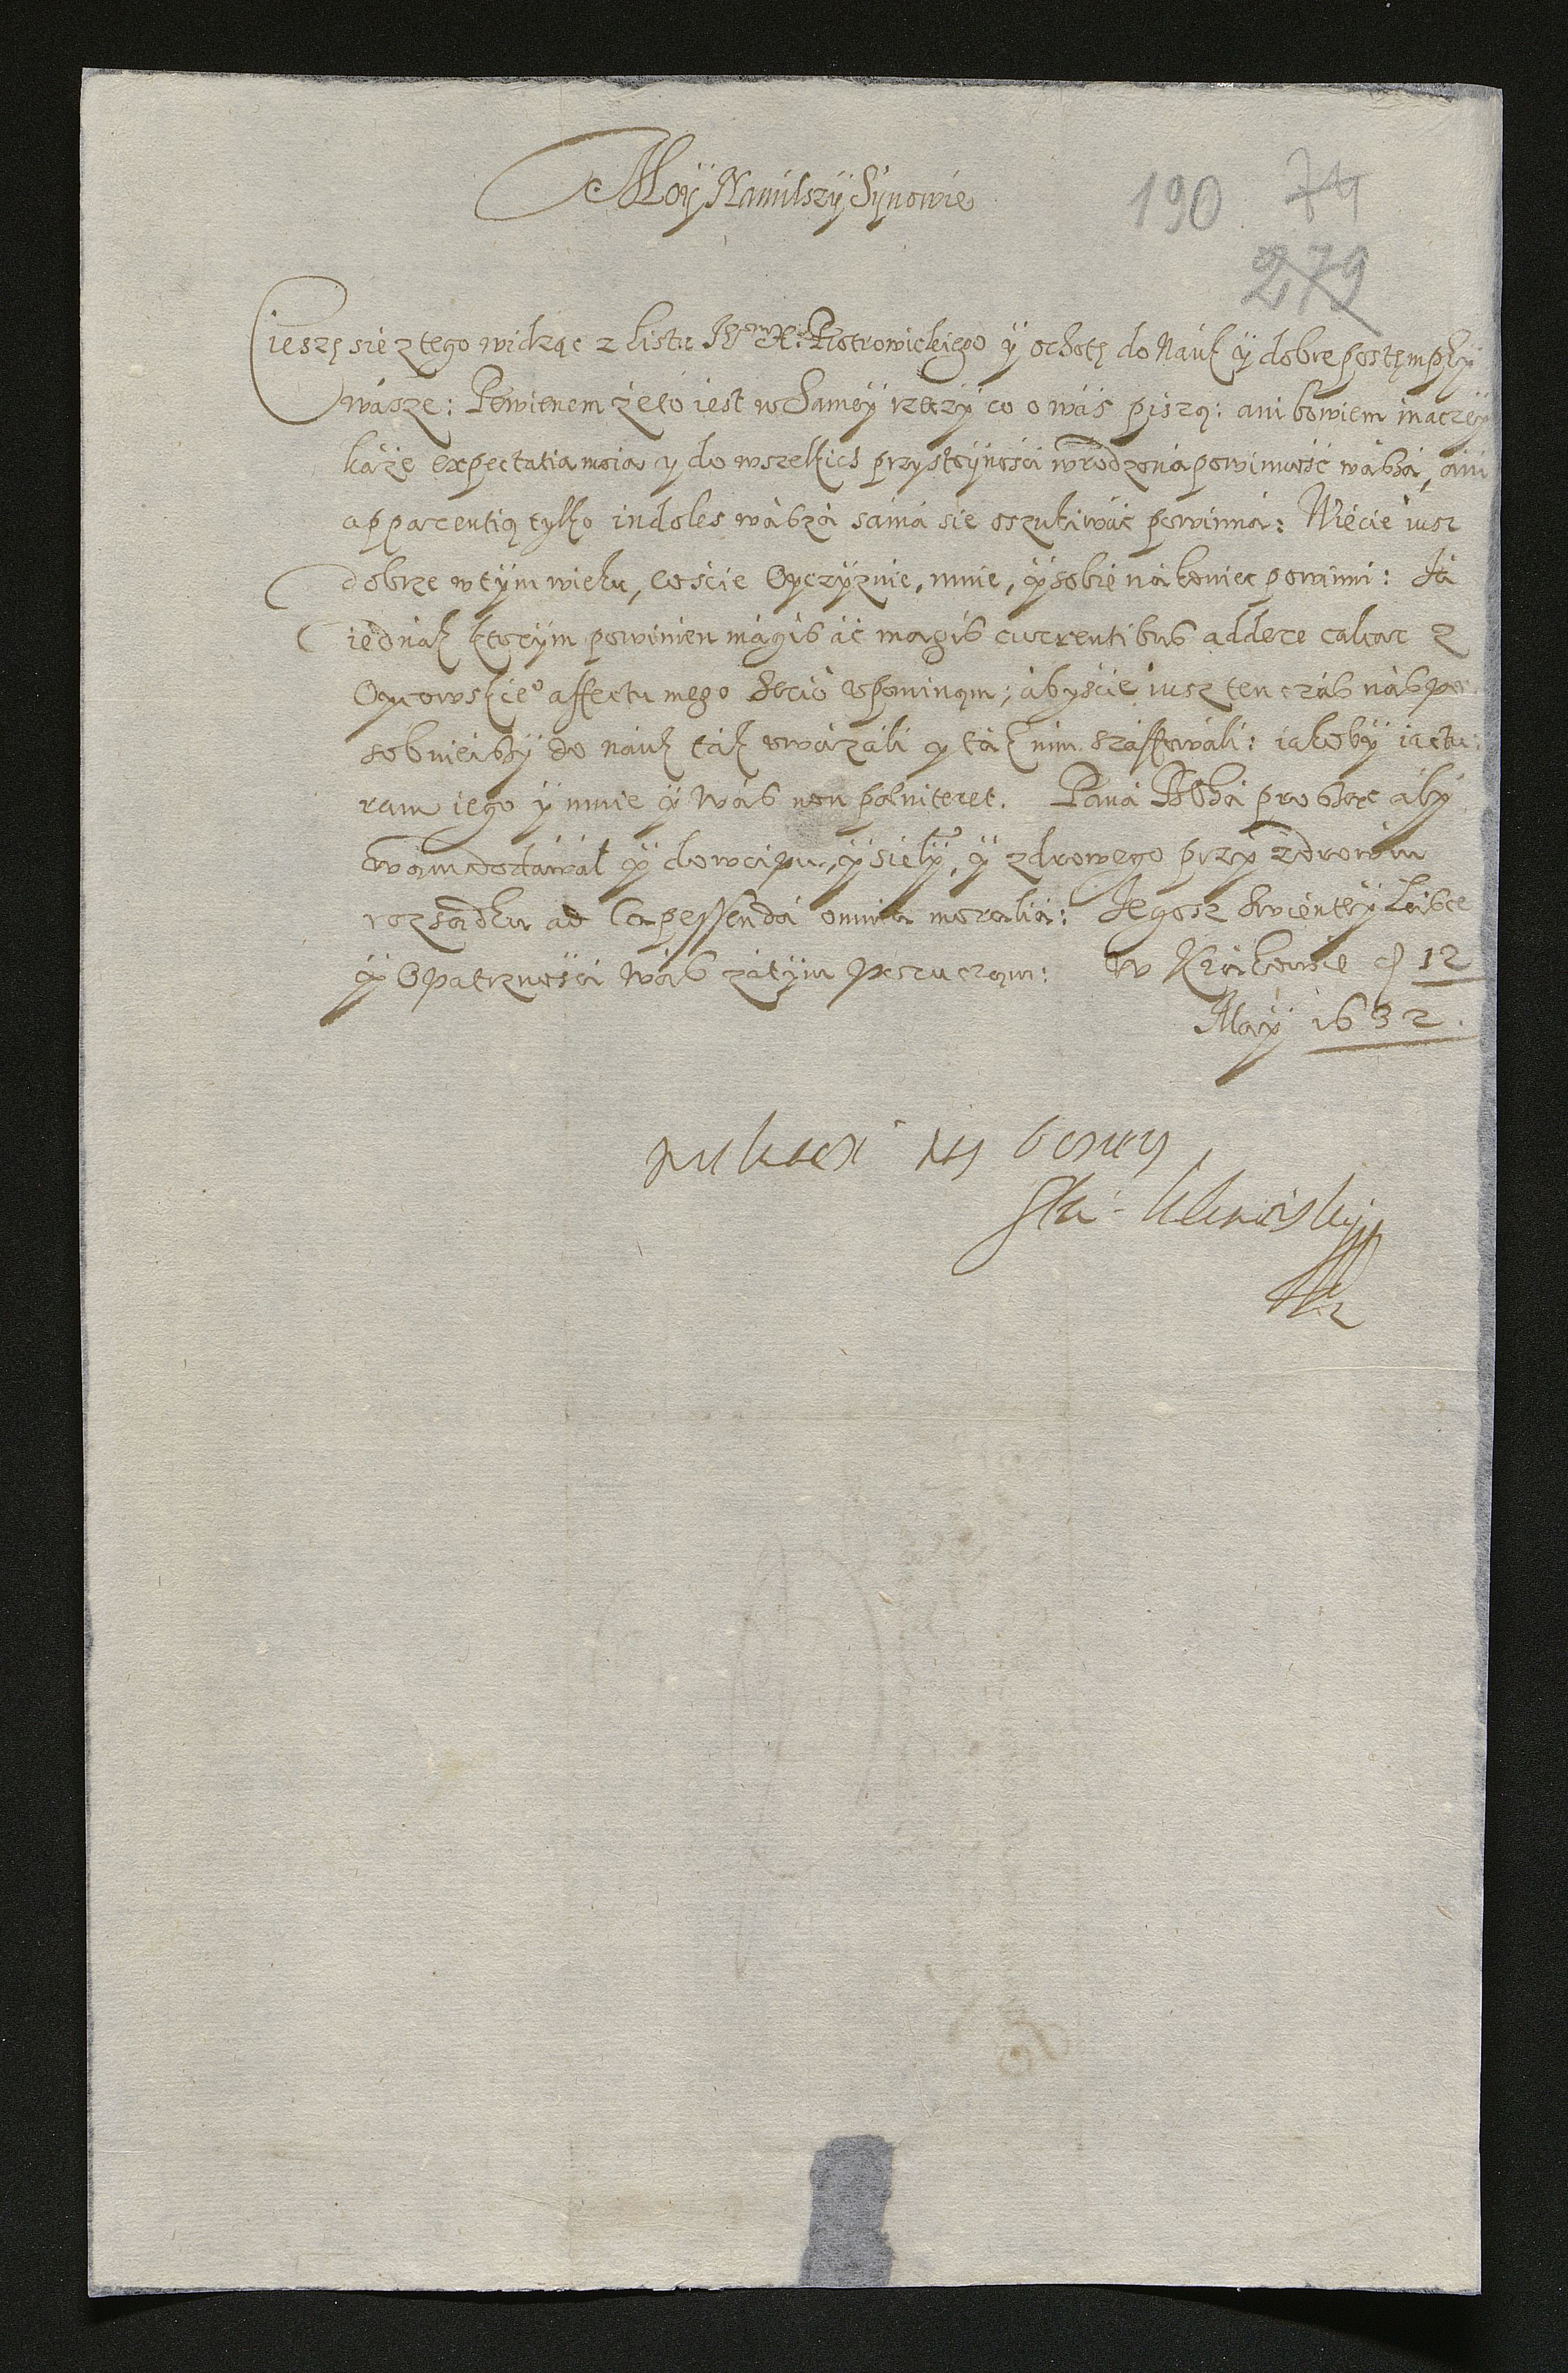 Moÿ Namilszÿ Sÿnowie
190 74
279
Cieszę się z tego widząc z listu X: Piotrowickiego ÿ ochotę do Nauk ÿ dobre postęmpkÿ
wásze: Pewienem że to iest w sameÿ rzeczÿ co o wás piszą: ani bowiem inaczeÿ
káże expectatia moia y do wszelkich przystoÿnośći wrodzona powinność wászá, áni
apparentią tylko indoles wászá sámá się oszukiwáć powinná: Wiećie iusz
dobrze w tÿm wieku, cośćie Oyczÿznie, mnie, ÿ sobie ná koniec powinni: Já
iednak ktorÿm powinien mágis ác magis currentibus addere calcar z
Oycowskieo affectu mego upominąm; ábyśćie iusz ten czás nàspo-
sobnieiszÿ do náuk ták uwáżáli y ták nim száffowáli: iakobÿ iactu-
ram iego ÿ mnie ÿ Wás non pœniteret. Páná Bogá proszę ábÿ
wám dodáwáł ÿ dowcipu, ÿ siełÿ, ÿ zdrowego przÿ zdrowiu
rozsądku ad Capessendá omnia moralia: Jegosz Swięnteÿ Łásce
ÿ Opatrznośći Wás zátÿm poruczam: W Krákowie d 12
Maÿ 1632.